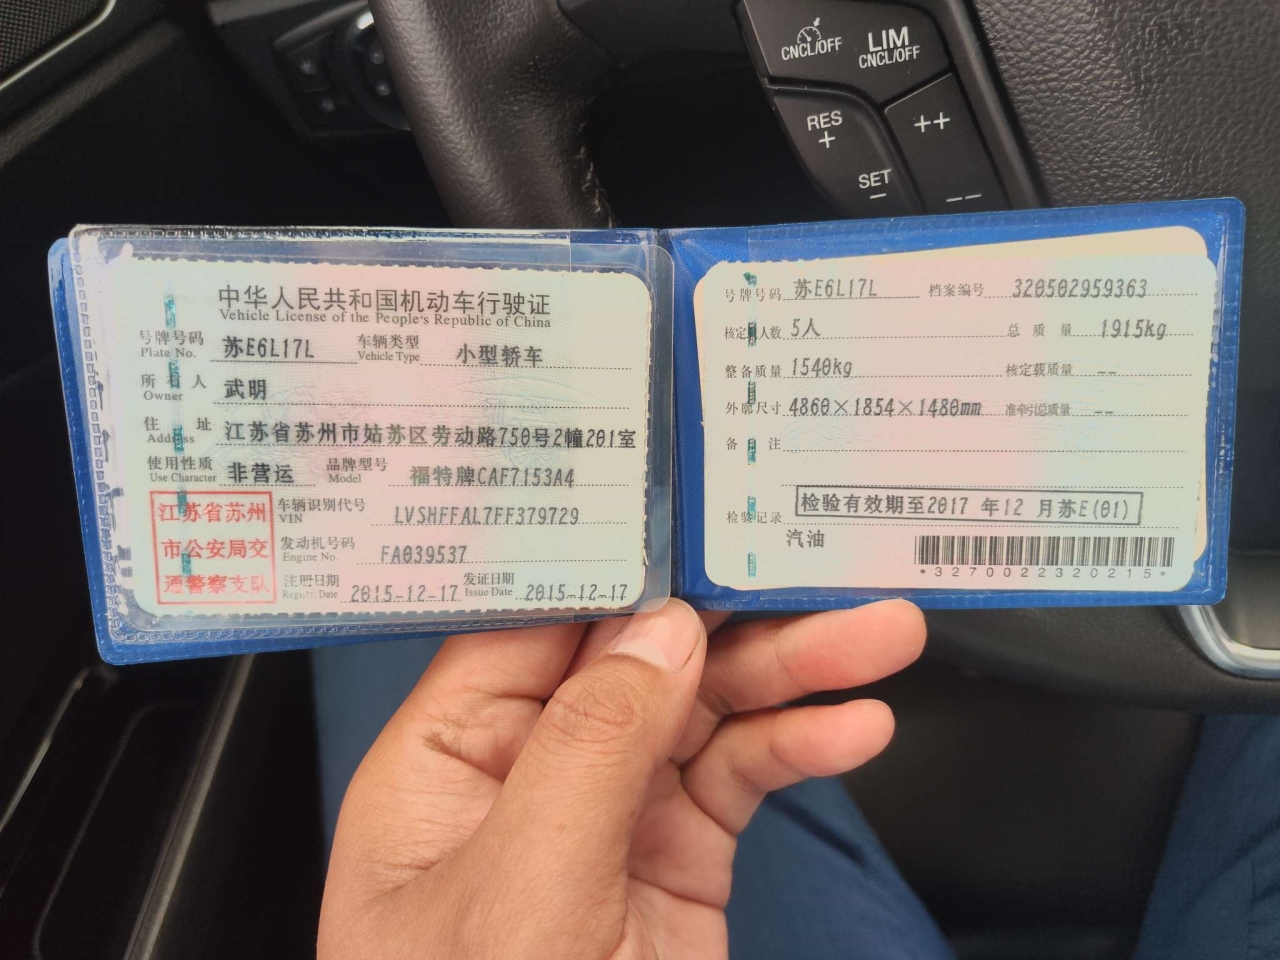 CNCL/OFF
LIM
CNCL/OFF
RES
+
++
SET
－
－－
中华人民共和国机动车行驶证
Vehicle License of the People's Republic of China
号牌号码 苏E6L17L 车辆类型 小型轿车
Plate No. Vehicle Type
所有人 武明
Owner
住址 江苏省苏州市姑苏区劳动路750号2幢201室
Address
使用性质 非营运 品牌型号 福特牌CAF7153A4
Use Character Model
江苏省苏州
市公安局交
通警察支队
车辆识别代号 LVSHFFAL7FF379729
VIN
发动机号码 FA039537
Engine No.
注册日期 2015-12-17 发证日期 2015-12-17
Register Date Issue Date
号牌号码 苏E6L17L 档案编号 320502959363
核定人数 5人 总质量 1915kg
整备质量 1540kg 核定载质量 --
外廓尺寸 4860×1854×1480mm 准牵引总质量 --
备注
检验记录 检验有效期至2017 年12 月苏E(01)
汽油
*3270022320215*